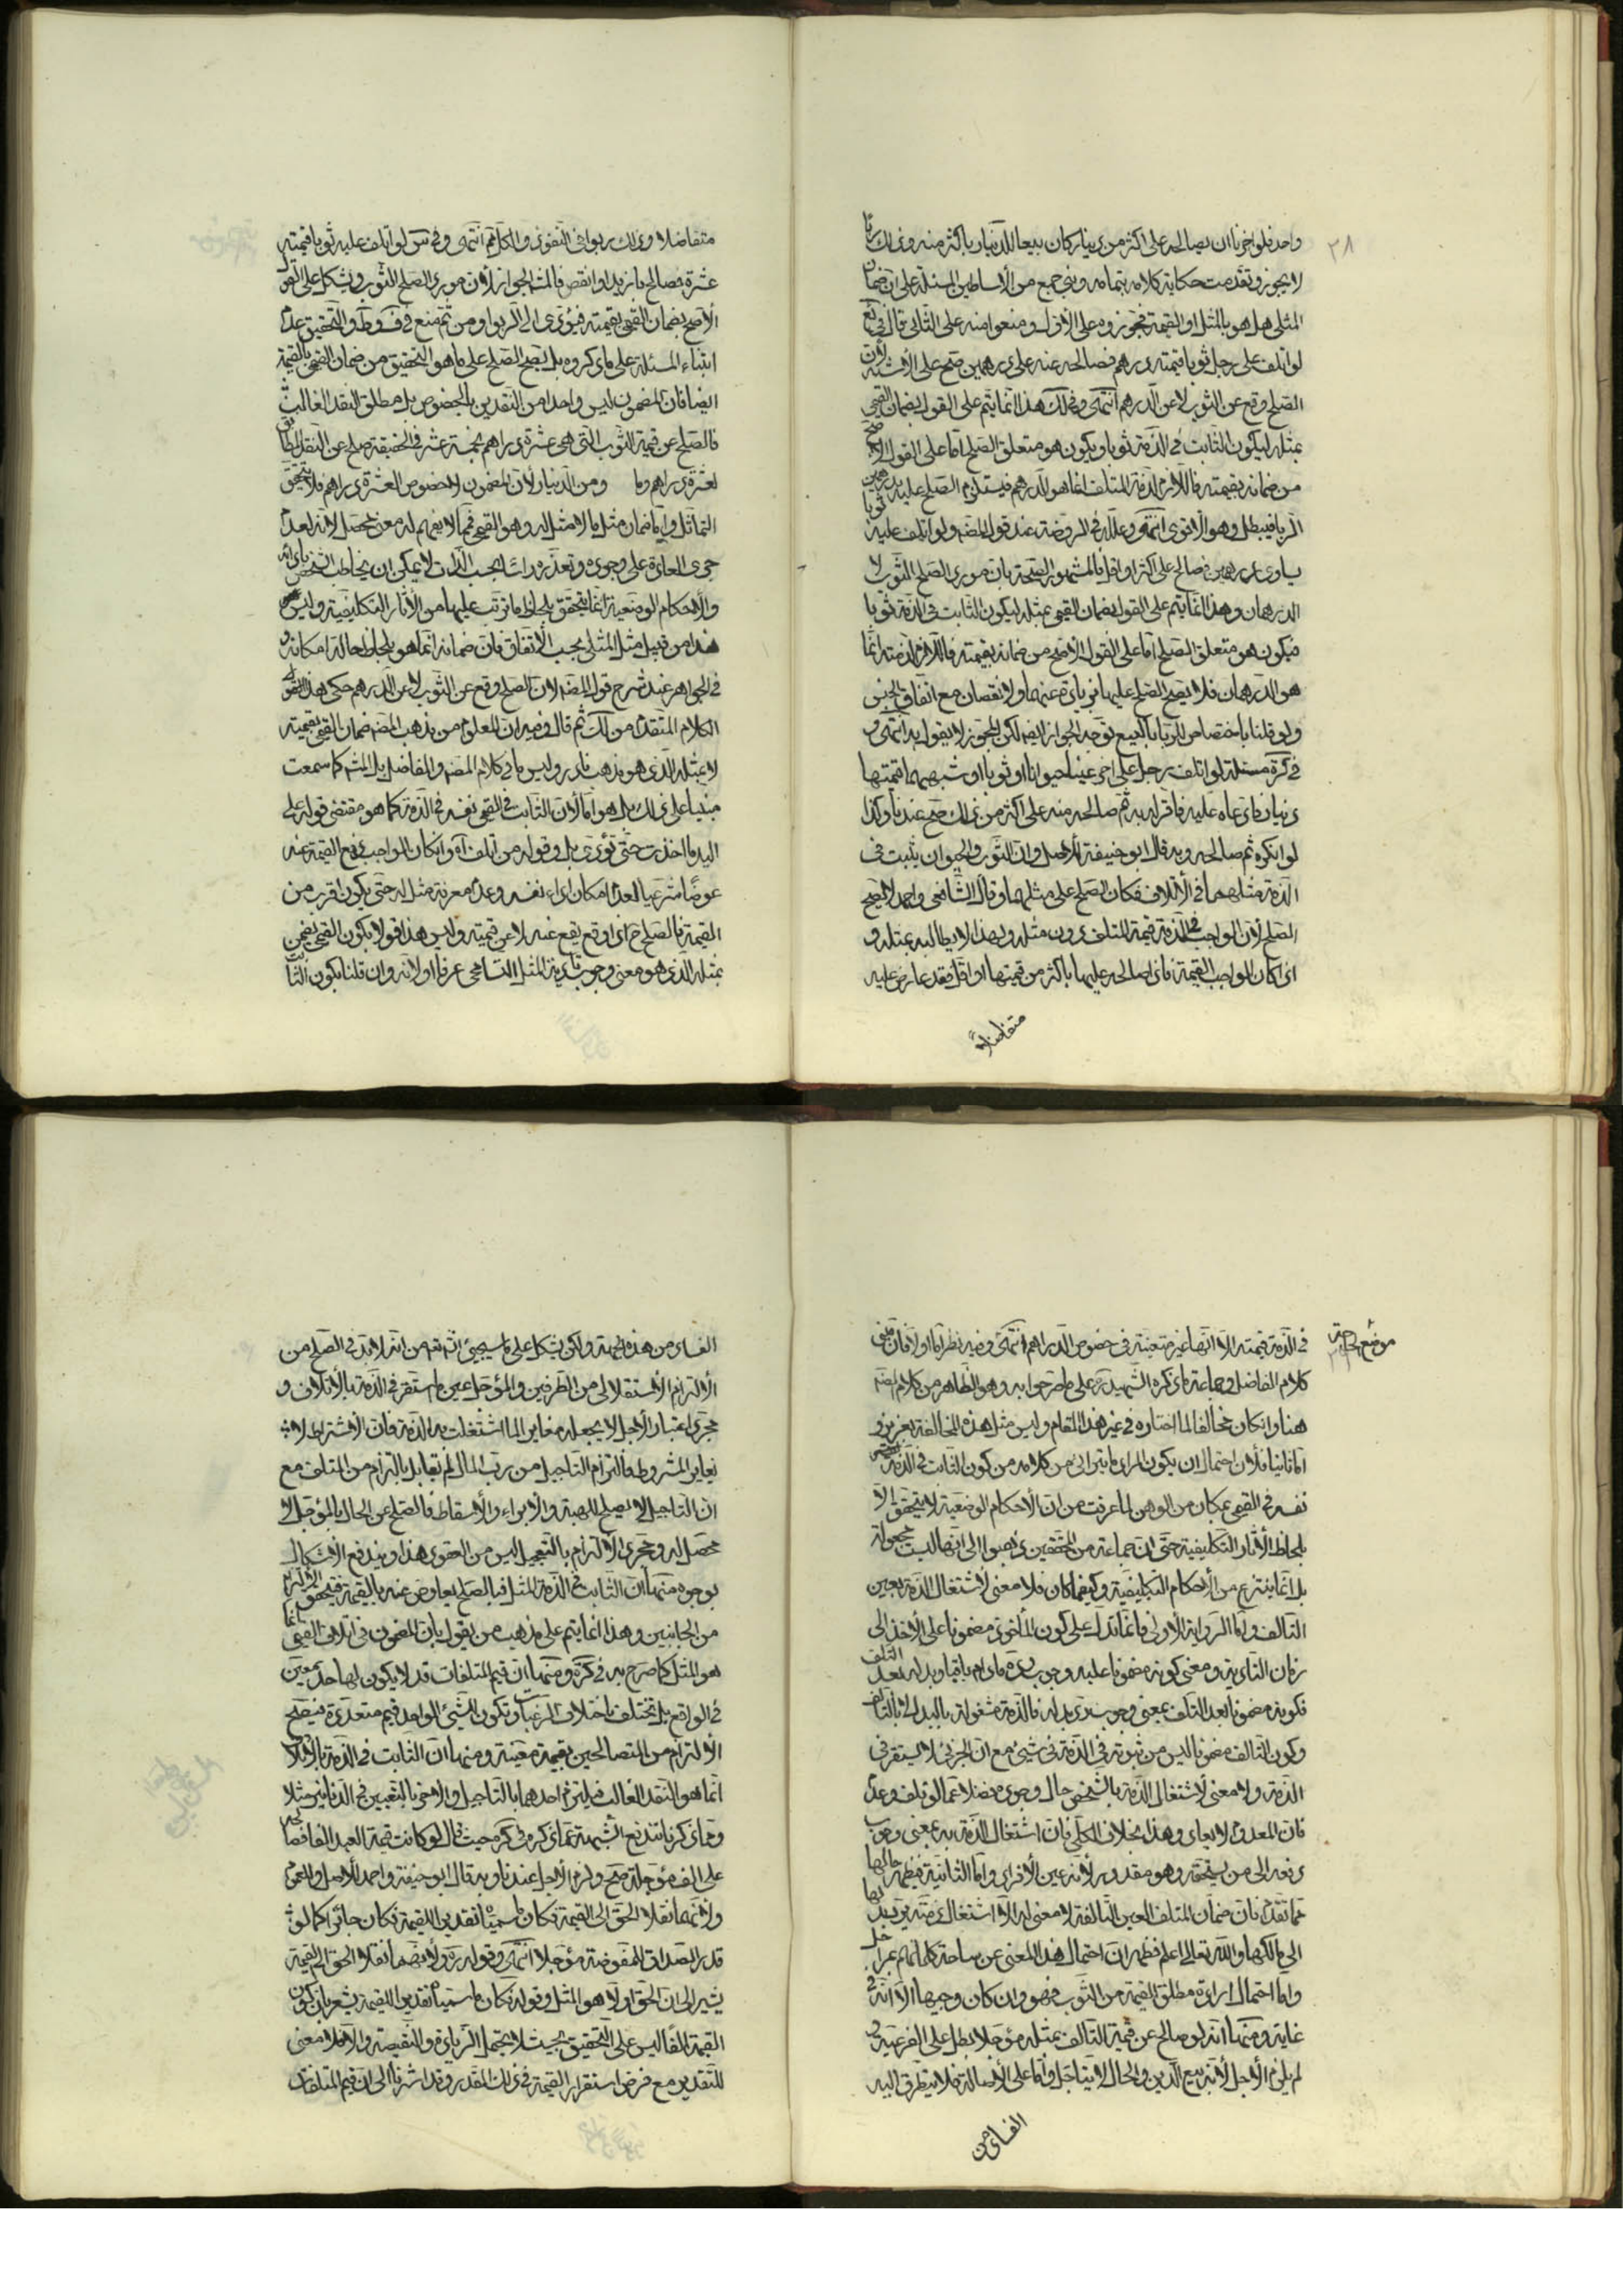 ٣٨
واحد فلو اجزنا ان يصالحه على اكثر من دينار كان بيعا للدنيار باكثر منه وذلك ربا
لا يجوز وتقدمت حكاية كلامه بتمامه وبنى جمع من الأساطين المسئلة على ان ضمان
المثلي هل هو بالمثل او القيمة فجوزوه على الأول ومنعوا منه على الثاني قال في
لو اتلف على رجل ثوبا قيمته درهم فصالحه عنه على درهمين صح على الأشبه لأن
الصلح وقع عن الثوب لا عن الدرهم انتهى وفي لك هذا انما يتم على القول بضمان القيمي
بمثله ليكون الثابت في الذمة ثوبا ويكون هو متعلق الصلح اما على القول الأصح
من ضمانه بقيمته فاللازم لذمة المتلف انما هو الدرهم فيستلزم الصلح عليه بدرهمين
الربا فيبطل وهو الأقوى انتهى وعلله في الروضة عند قول المصنف ولو اتلف عليه ثوبا
يساوي درهمين فصالح على اكثر او اقل فالمشهور الصحة بان مورد الصلح الثوب لا
الدرهمان وهذا انما يتم على القول بضمان القيمي بمثله ليكون الثابت في الذمة ثوبا
فيكون هو متعلق الصلح اما على القول الأصح من ضمانه بقيمته فاللازم لذمته انما
هو الدرهمان فلا يصح الصلح عليهما بزيادة عنهما ولا نقصان مع اتفاق الجنس
ولو قلنا باختصاص الربا بالبيع توجه الجواز ايضا لكن المجوز لا يقول به انتهى و
في كرة مسئلة لو اتلف رجل على اخر عينا حيوانا او ثوبا او شبههما قيمتها
دينار فادعاه عليه فاقر له به ثم صالحه منه على اكثر من ذلك صح عندنا وكذا
لو انكره ثم صالحه وبه قال ابو حنيفة للأصل وان الثوب والحيوان يثبت في
الذمة مثلهما في الأتلاف فكان الصلح على مثلهما وقال الشافعي واحمد لا يصح
الصلح لأن الواجب في الذمة قيمة المتلف دون مثله ولهذا لا يطالبه بمثله و
اذا كان الواجب القيمة فاذا صالحه عليها باكثر من قيمتها او اقل فقد عارض عليه
متفاضلا
متفاضلا وذلك ربوا في النقود والكل قيم انتهى وفي س لو اتلف عليه ثوبا قيمته
عشرة فصالح بازيد او انقص فالمشهور الجواز لأن مورد الصلح الثوب ويشكل على القول
الأصح بضمان القيمي بقيمته فيؤدي الى الربوا ومن ثم منع في ف وط والتحقيق عدم
ابتناء المسئلة على ما ذكروه بل يصح الصلح على ما هو التحقيق من ضمان القيمي بالقيمة
ايضا فان المضمون ليس واحدا من النقدين بالخصوص بل مطلق النقد الغالب
فالصلح عن قيمة الثوب التي هي عشرة دراهم بخمسة عشر في الحقيقة صلح عن النقد المطابق
لعشرة دراهم وما ومن الدنيار لأن المضمون لا خصوص العشرة دراهم فلا يتحقق
التماثل واما ضمان مثل ما لا مثل له وهو القيمي فما لا يفهم له معنى محصل لأنه لعدم
جري العادة على وجوده وتعذره راسا بحسب الذات لا يمكن ان يخاطب الشخص
والأحكام الوضعية انما يتحقق بلحاظ ما ترتب عليها من الأثار التكليفية وليس
هذا من قبيل مثل المثلي بحسب الأتفاق فان ضمانه انما هو بلحاظ حالة امكانه و
في الجواهر عند شرح قول المصنف لان الصلح وقع عن الثوب لا عن الدرهم حكى هذا القول
الكلام المتقدم من لك ثم قال وفيه ان المعلوم من مذهب المصنف ضمان القيمي بقيمته
لا بمثله الذي هو مذهب نادر وليس ما في كلام المصنف والفاضل بل المشهور كما سمعت
مبنيا على ذلك بل هو اما لأن الثابت في القيمي نفسه في الذمة كما هو مقتضى قوله على
اليد ما اخذت حتى تؤدي بل وقوله من اتلف آه وان كان الواجب دفع القيمة عنه
عوضا شرعيا لعدم امكان اداء نفسه وعدم معرفة مثل له حتى يكون اقرب من
القيمة فالصلح ح اذا وقع يقع عنه لا عن قيمته وليس هذا قولا بكون القيمي يضمن
بمثله الذي هو معنى وجوب تادية المثل التسامحي عرفا اولا لأنه وان قلنا بكون الثابت
في الذمة قيمته الا انها غير متعينة في خصوص الدراهم انتهى وفيه نظر اما اولا فان مبنى
كلام الفاضل وجماعة ما ذكره الشهيد ره على ما صرحوا به وهو الظاهر من كلام المصنف
هنا وان كان مخالفا لما اختاره في غير هذا المقام وليس مثل هذه المخالفة بعزيز و
اما ثانيا فلأن احتمال ان يكون المراد ما يترائى من كلامه من كون الثابت في الذمة
نفسه في القيمي بمكان من الوهن لما عرفت من ان الأحكام الوضعية لا يتحقق الا
بلحاظ الأثار التكليفية حتى ان جماعة من المحققين ذهبوا الى انها ليست مجعولة
بل انما ينتزع من الأحكام التكليفية وكيفما كان فلا معنى لاشتغال الذمة بعين
التالف واما الرواية الأولى فانما تدل على كون المأخوذ مضمونا على الأخذ الى
زمان التادية ومعنى كونه مضمونا عليه وجوب رده مادام باقيا وبدله بعد التلف
فكونه مضمونا بعد التلف بمعنى وجوب رد بدله فالذمة مشغولة بالبدل لا بالتالف
وكون التالف مضمونا ليس من ثبوته في الذمة في شيئ مع ان الجزئي لا يستقر في
الذمة ولا معنى لاشتغال الذمة بالشخص حال وجوده فضلا عما لو تلف وعدم
فان المعدوم لا يعاد وهذا بخلاف الكلي فان اشتغال الذمة به بمعنى وجوب
دفعه الى من يستحقه وهو مقدور لأنه عين الأفراد واما الثانية فيظهر حالها
مما تقدم فان ضمان المتلف العين التالفة لا معنى له الا اشتغال ذمته برد بدلها
الى مالكها والله تعالى اعلم فظهر ان احتمال هذا المعنى عن ساحة كلماتهم بمراحل
واما احتمال ارادة مطلق القيمة من الثوب فهو وان كان وجيها الا انه في
غاية ومنها انه لو صالح عن قيمة التالف بمثله مؤجلا بطل على الفرعية و
لم يلزم الأجل لأنه بيع الدين والحال لا يتاجل واما على الأصالة فلا يتطرق اليه
الفساد من
الفساد من هذه الجهة ولكن يشكل على ما سيجيئ انشاء الله من انه لا بد في الصلح من
الألتزام الأستقلالي من الطرفين والمؤجل عين ما استقر في الذمة بالأتلاف و
مجرد اعتبار الأجل لا يجعله مغايرا لما اشتغلت به الذمة فان الأشتراط لا
يغاير المشروط فالتزام التاجيل من رب المال لم يقابل بالتزام من المتلف مع
ان التاجيل لا يصلح للهبة والأبراء والأسقاط فالصلح عن الحال بالمؤجل لا
محصل له ومجرد الألتزام بالتعجيل ليس من العقود هذا ويندفع الأشكال
بوجوه منها ان الثابت في الذمة المثل فبالصلح يعاوض عنه بالقيمة فيتحقق الألتزام
من الجانبين وهذا انما يتم على مذهب من يقول بان المضمون في اتلاف القيمي انما
هو المثل كما صرح به في كرة ومنها ان قيم المتلفات قد لا يكون لها حد معين
في الواقع بل تختلف باختلاف الرغبات وتكون للشيئ الواحد قيم متعددة فيصح
الألتزام من المتصالحين بقيمة معينة ومنها ان الثابت في الذمة بالأتلاف
انما هو النقد الغالب فيلتزم احدهما بالتاجيل والاخر بالتعيين في الدنانير مثلا
وبما ذكرنا تندفع الشبهة عما ذكره في كرة حيث قال لو كانت قيمة العبد الفا فصالحه
على الف مؤجلة صح ولزم الأجل عندنا وبه قال ابو حنيفة واحمد للأصل والعموم
ولأنهما نقلا الحق الى القيمة فكان ما سمياه تقديرا للقيمة فكان جائزا كما لو
قدر الصداق المفوضة مؤجلا انتهى وقوله ره ولأنهما نقلا الحق الى القيمة
يشير الى ان الحق اولا هو المثل وقوله فكان ما سمياه تقديرا للقيمة يشعر بان كون
القيمة الفا ليس على التحقيق بحيث لا يحتمل الزيادة والنقيصة والا فلا معنى
للتقدير مع فرض استقرار القيمة في ذلك المقدر وقد اشرنا الى ان قيم المتلفات